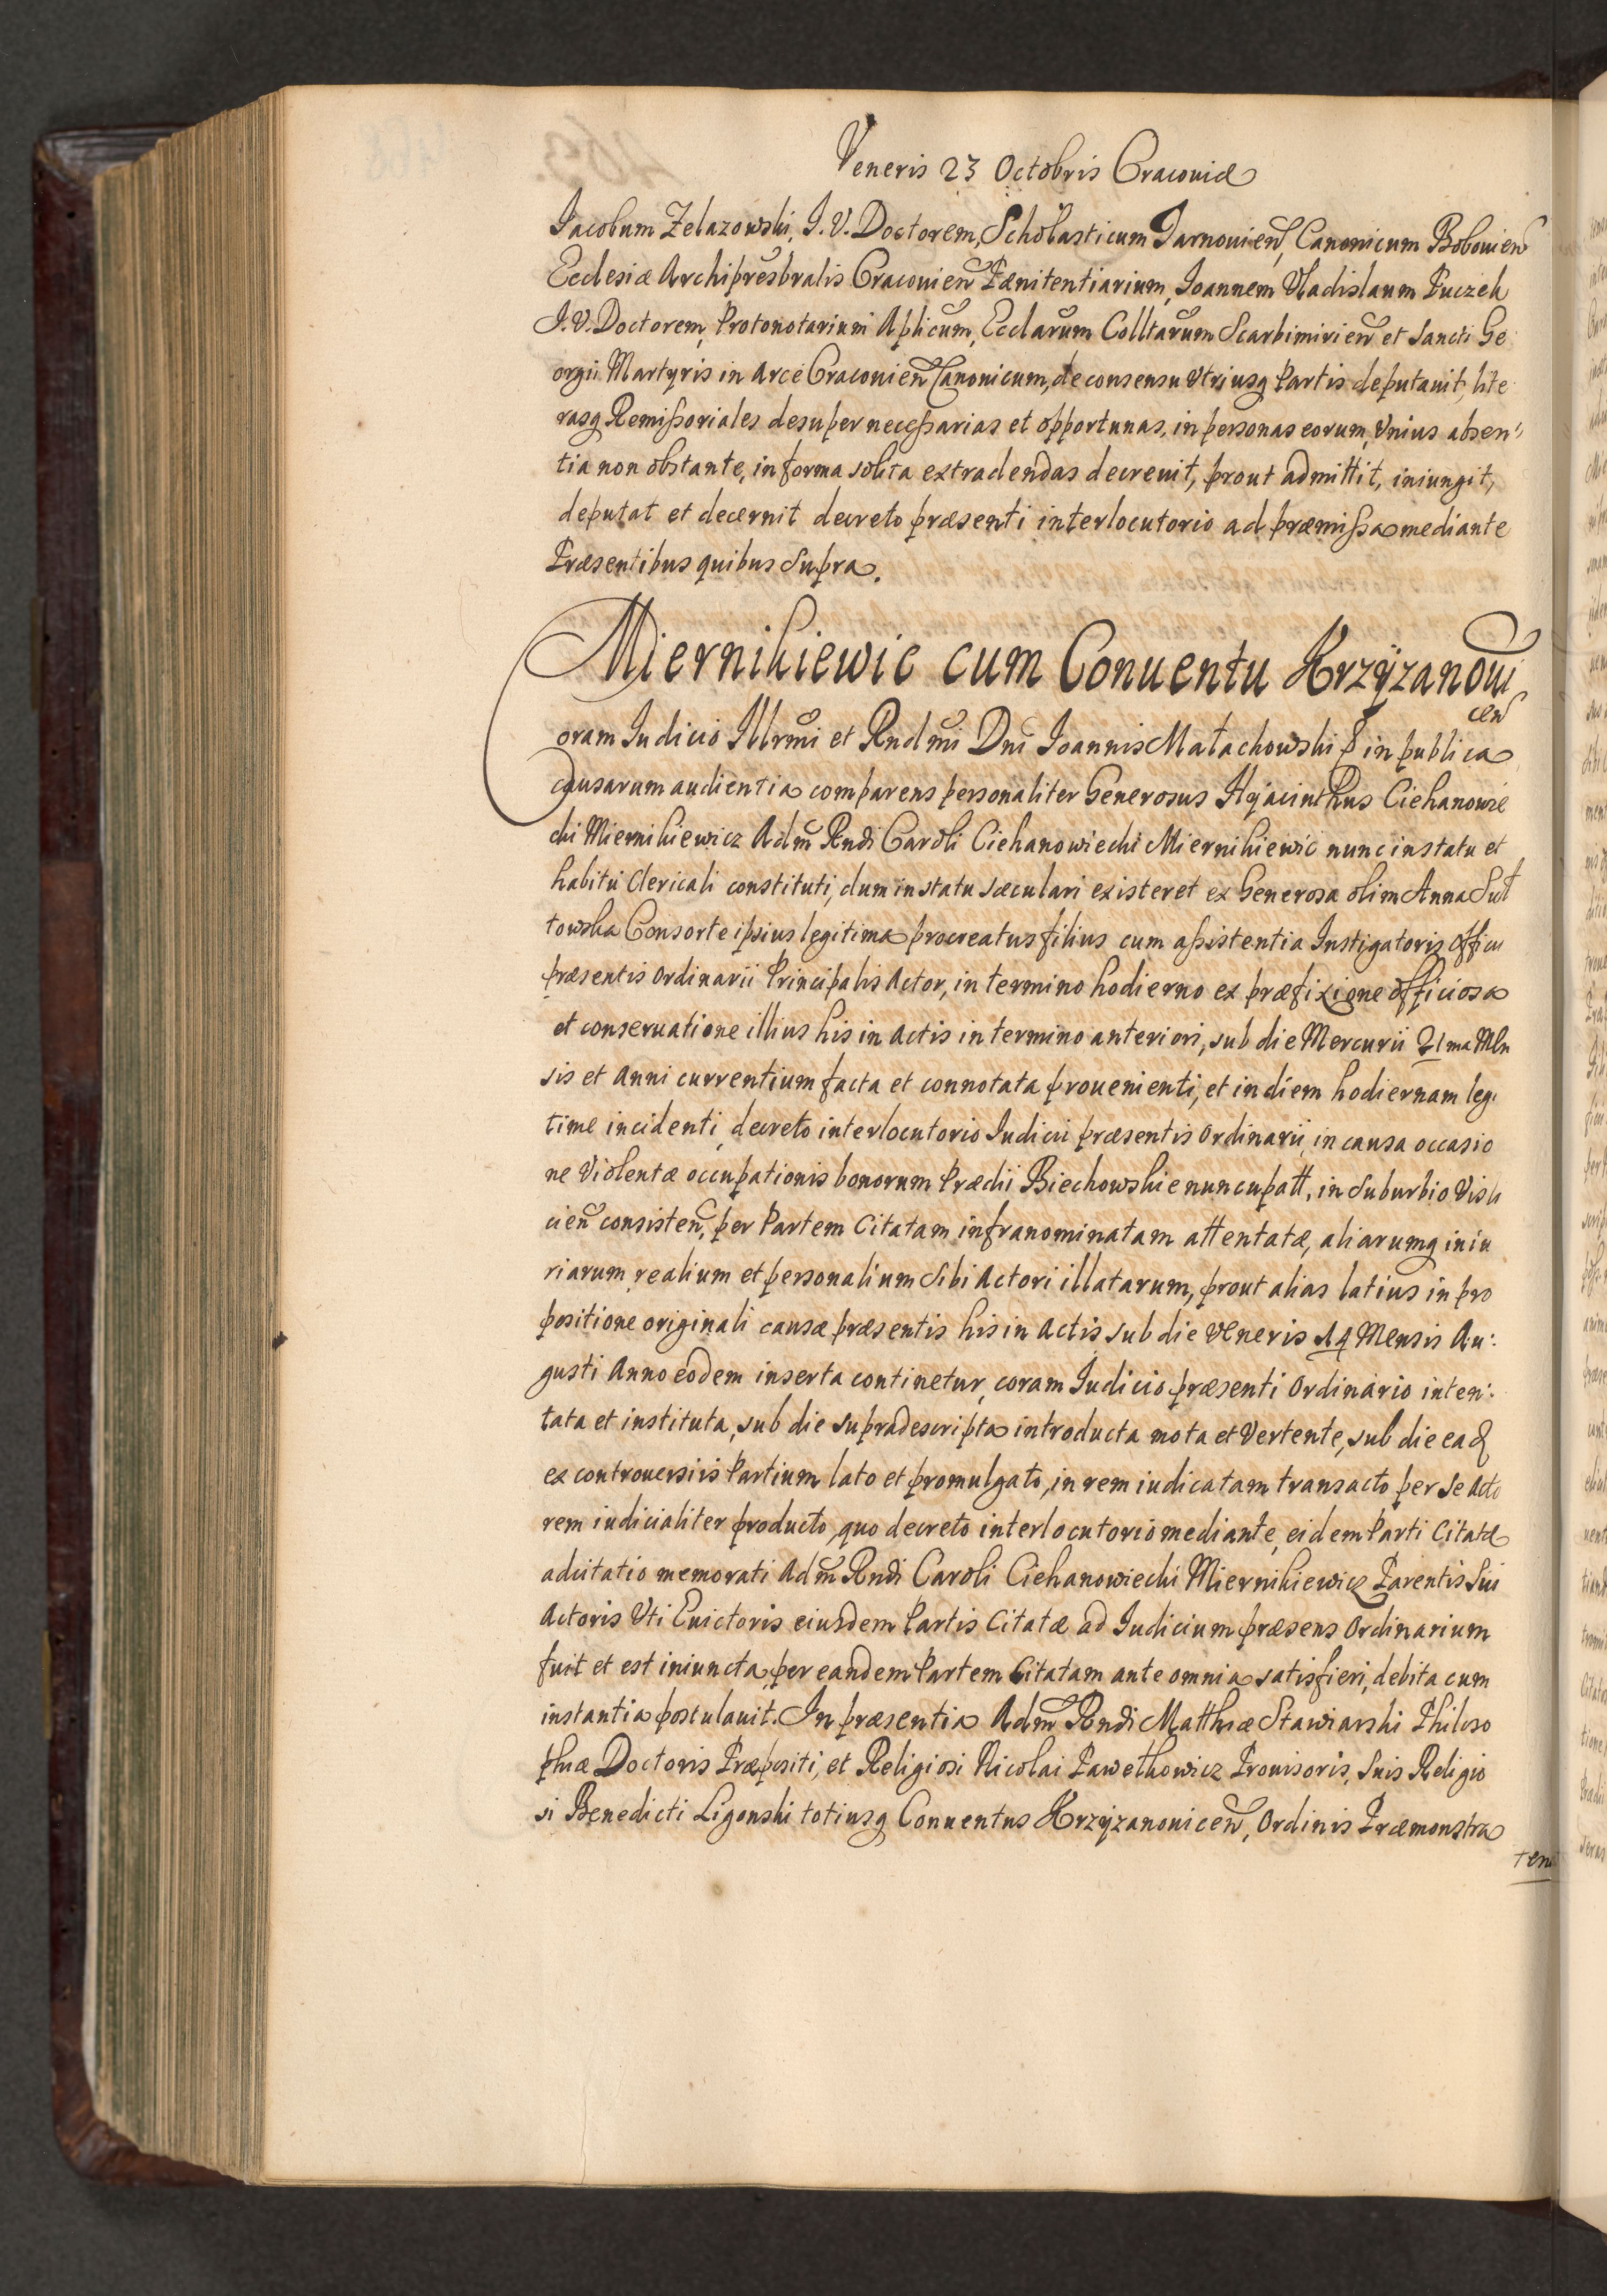 Veneris 23 Octobris Cracoviæ
Jacobum Zelazowski, J. V. Doctorem, Scholasticum Tarnovien̄, Canonicum Bobovien̄
Ecclesiæ Archipresbralis Cracovien̄ Pœnitentiarium, Joannem Vladislaum Puczek
J. V. Doctorem, Protonotarium Aplicum, Ecclarum Colltarum Scarbimirien̄ et Sancti Ge
orgii Martyris in Arce Cracovien̄ Canonicum, de consensu Vtriusq Partis deputauit, lite
rasq Remißoriales desuper neceßarias et opportunas, in personas eorum, Vnius absen:
tia non obstante, in forma solita extradendas decreuit, prout admittit, iniungit,
deputat et decernit decreto præsenti interlocutorio ad præmißa mediante
Præsentibus quibus Supra.
Miernikiewic cum Conuentu Krzÿzanoui
cen̄
Coram Judicio Jllrmi et Rndmi Dni Joannis Małachowski p in publica
causarum audientia comparens personaliter Generosus Hyacinthus Ciekanowie
cki Miernikiewicz Adm Rndi Caroli Ciekanowiecki Miernikiewic nunc in statu et
habitu Clericali constituti, dum in statu sæculari existeret ex Generosa olim Anna Suł
towska Consorte ipsius legitima procreatus filius cum aßistentia Instigatoris Officii
præsentis Ordinarii Principalis Actor, in termino hodierno ex præfixione officiosa
et conseruatione illius his in Actis in termino anteriori, sub die Mercurii 21 ma Men
sis et Anni currentium facta et connotata prouenienti, et in diem hodiernam legi
time incidenti, decreto interlocutorio Judicii præsentis Ordinarii, in causa occasio
ne Violentæ occupationis bonorum Prædii Biechowskie nuncupatt, in Suburbio Visli
cien̄ consisten̄, per Partem Citatam infranominatam attentatæ, aliarumq iniu
riarum realium et personalium Sibi Actori illatarum, prout alias latius in pro
positione originali causæ præsentis his in Actis sub die Veneris 14 Mensis Au:
gusti Anno eodem inserta continetur, coram Judicio præsenti Ordinario inten:
tata et instituta, sub die supradescripta introducta mota et Vertente, sub die ead
ex controuersiis Partium lato et promulgato, in rem iudicatam transacto per se Acto
rem iudicialiter producto, quo decreto interlocutorio mediante, eidem Parti Citatæ
adcitatio memorati Adm Rndi Caroli Ciekanowiecki Miernikiewicz Parentis Sui
Actoris Vti Euictoris eiusdem Partis Citatæ ad Judicium præsens Ordinarium
fuit et est iniuncta, per eandem Partem Citatam ante omnia satisfieri, debita cum
instantia postulauit. In præsentia Adm Rndi Matthiæ Stawiarski Philoso
phiæ Doctoris Præpositi, et Religiosi Nicolai Pawełkowicz Prouisoris, Suis Religio
si Benedicti Ligonski totiusq Conuentus Krzÿzanouicen̄, Ordinis Præmonstra
ten